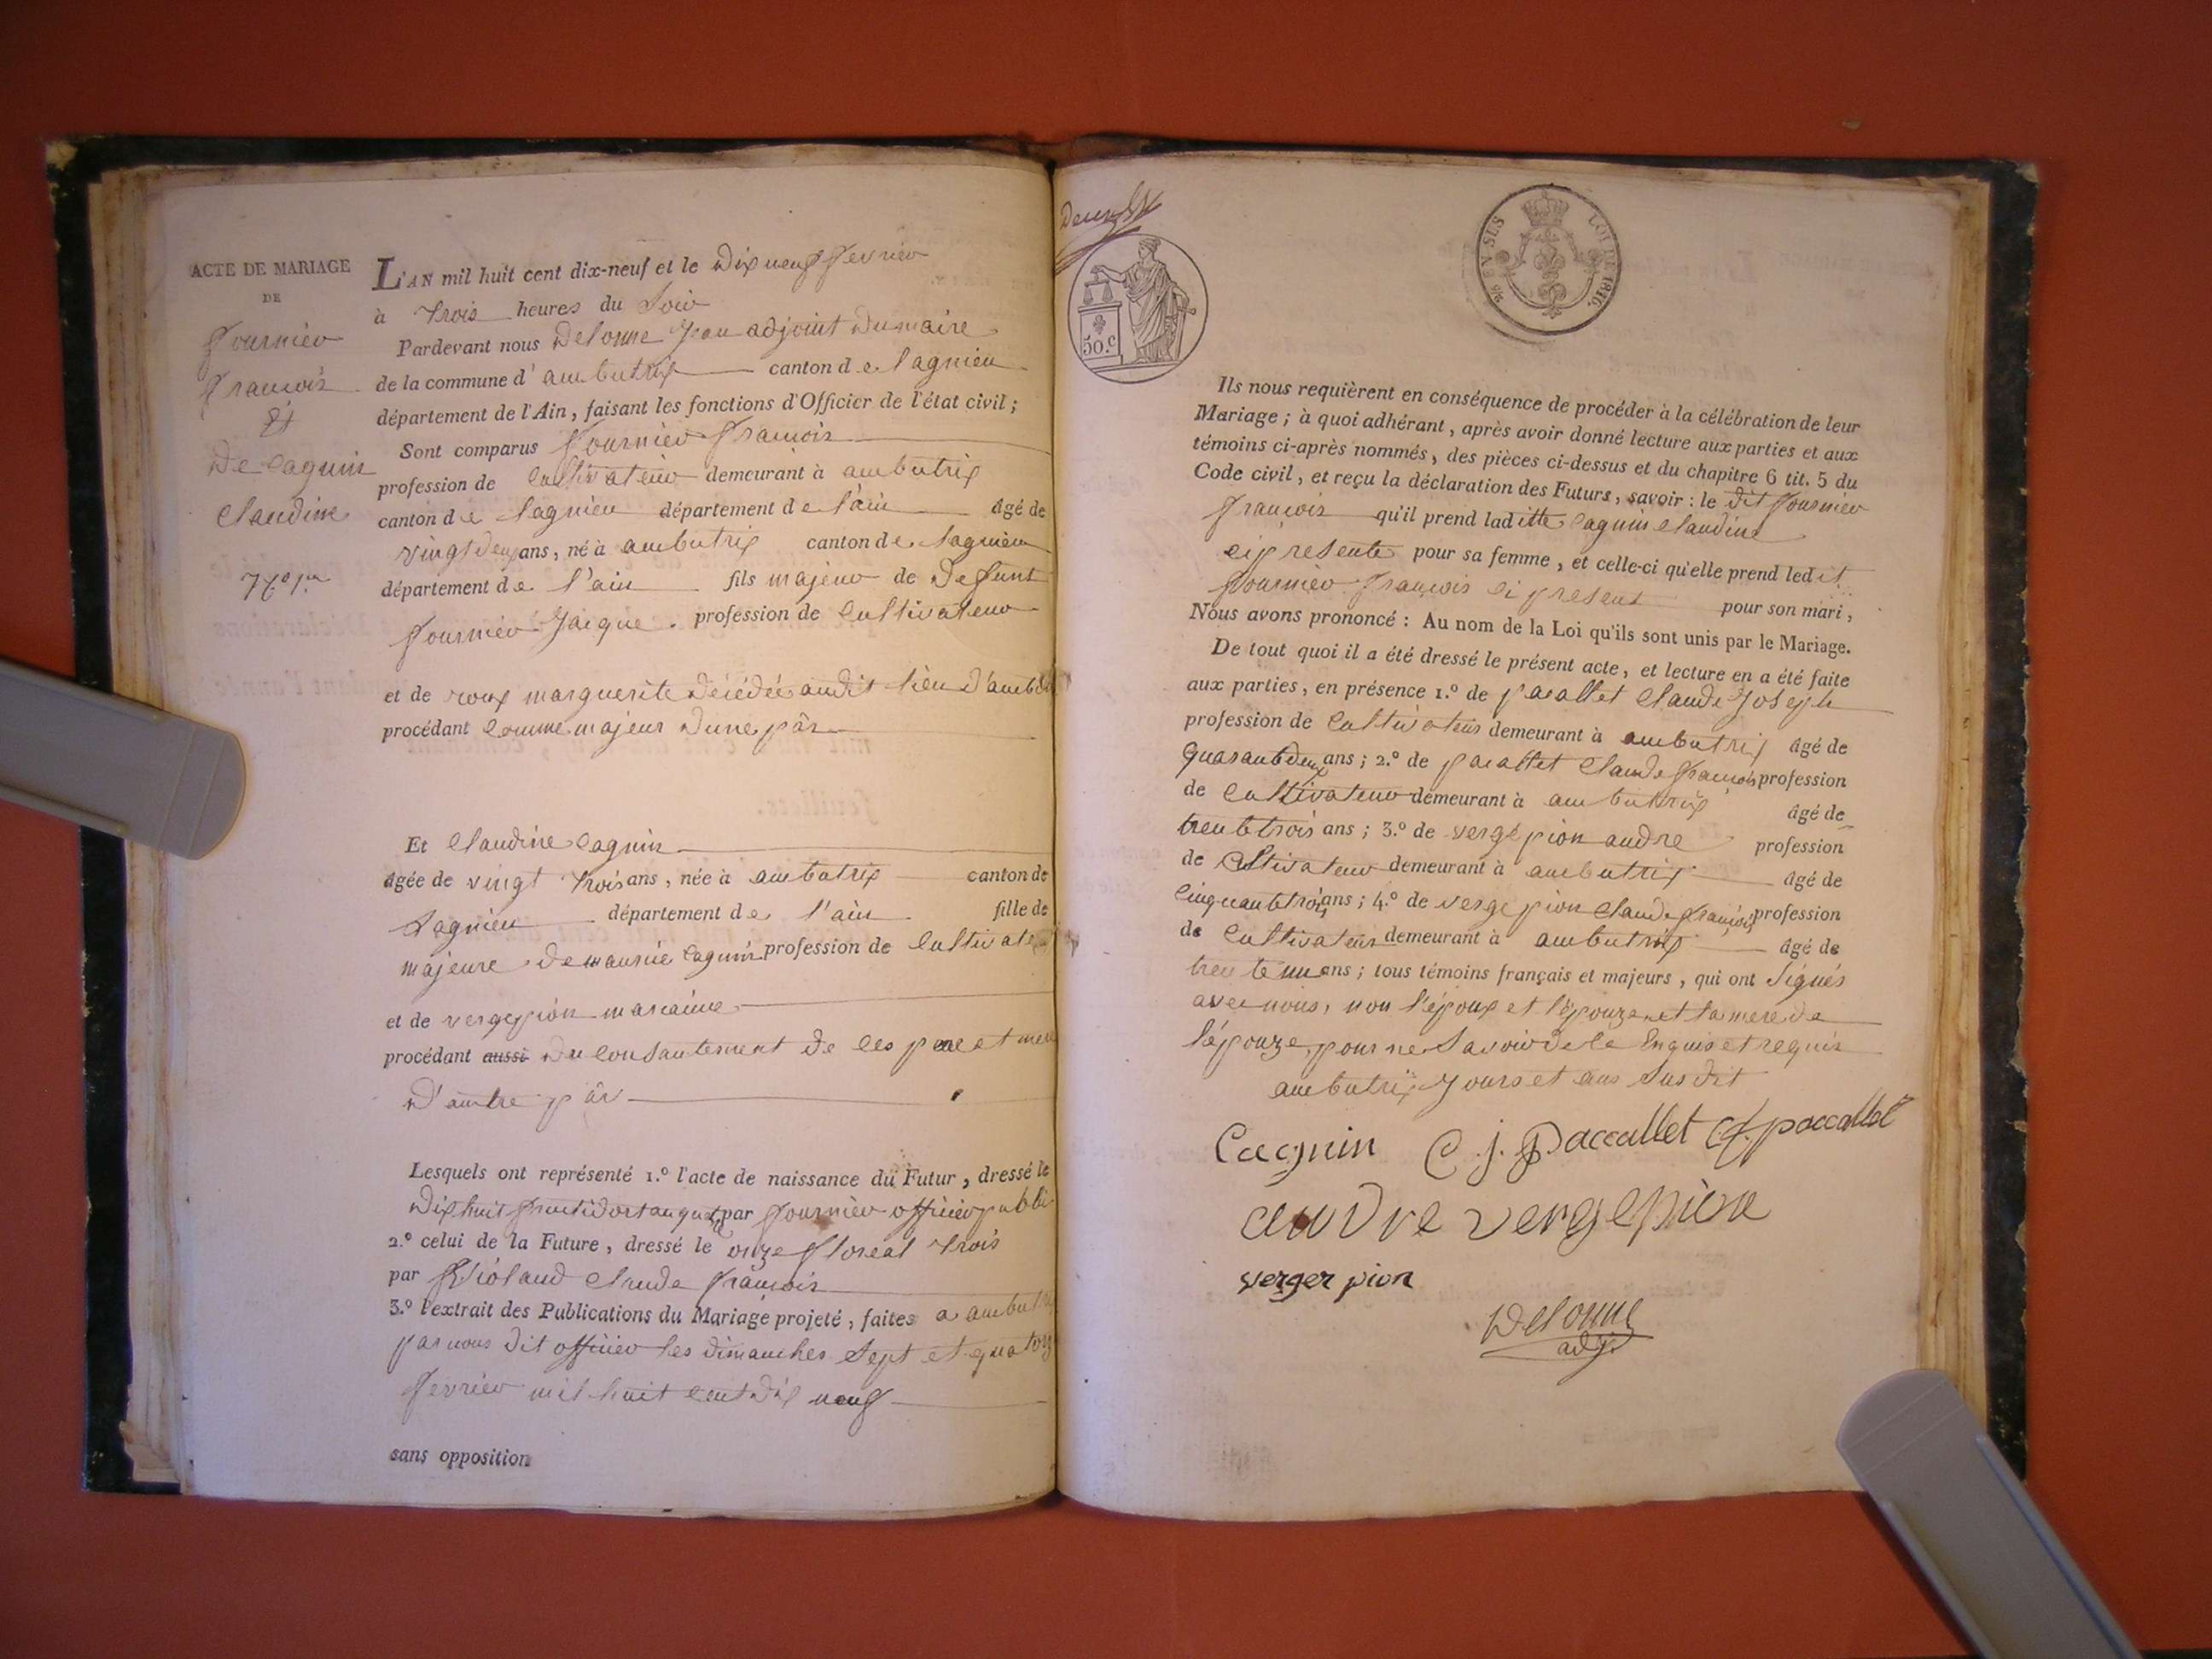 ACTE DE MARIAGE
DE
fournier
françois
Et
De Cagnin
Claudine
L'AN mil huit cent dix-neuf et le dix neuf fevrier
à trois heures du Soir
Pardevant nous Delorme Jean adjoint du maire
de la commune d'ambutrix canton de lagnieu
département de l'Ain, faisant les fonctions d'Officier de l'état civil ;
Sont comparus fournier françois
profession de Cultivateur demeurant à ambutrix
canton de lagnieu département de l'ain âgé de
vingt deux ans, né à ambutrix canton de lagnieu
département de l'ain fils majeur de Defunt
fournier Jacque profession de Cultivateur
et de roux marguerite décédée audit lieu d'ambut
procédant Comme majeur d'une pâr
Et Claudine Cagnin
âgée de vingt trois ans, née à ambutrix canton de
Lagnieu département de l'ain fille de
majeure de maurice Cagnin profession de Cultivate
et de vergepion mariaine
procédant aussi du Consantement de ces pere et mere
D'autre pâr
Lesquels ont représenté 1.º l'acte de naissance du Futur, dressé le
dixhuit fructidort an quatre par fournier officier publi
2.º celui de la Future, dressé le onze floreal trois
par Claude françois
3.º l'extrait des Publications du Mariage projeté, faites a ambutri
par nous dit officier les dimanches Sept et quatorz
fevrier mil huit cent dix neuf
sans opposition
50.c
LOI DE 1816.
Ils nous requièrent en conséquence de procéder à la célébration de leur
Mariage ; à quoi adhérant, après avoir donné lecture aux parties et aux
témoins ci-après nommés, des pièces ci-dessus et du chapitre 6 tit. 5 du
Code civil, et reçu la déclaration des Futurs, savoir : le dit fournier
françois qu'il prend laditte Cagnin Claudine
ci presente pour sa femme, et celle-ci qu'elle prend ledit
fournier françois ci present pour son mari,
Nous avons prononcé : Au nom de la Loi qu'ils sont unis par le Mariage.
De tout quoi il a été dressé le présent acte, et lecture en a été faite
aux parties, en présence 1.º de pacallet Claude Joseph
profession de Cultivateur demeurant à ambutrix âgé de
quarantedeux ans ; 2.º de pacallet Claude françois profession
de Cultivateur demeurant à ambutrix âgé de
trentetrois ans ; 3.º de vergepion andre profession
de Cultivateur demeurant à ambutrix âgé de
Cinquantetrois ans ; 4.º de vergepion Claude françois profession
de Cultivateur demeurant à ambutrix âgé de
trenteun ans ; tous témoins français et majeurs, qui ont Signés
avec nous, non l'époux et l'épouze et la mere de
l'épouze, pour ne Savoir de ce Enquis et requis
ambutrix Jours et ans Susdit
Cagnin C. j. Paccallet C.f. paccallet
andre vergepion
verger pion
Delorme
adj.